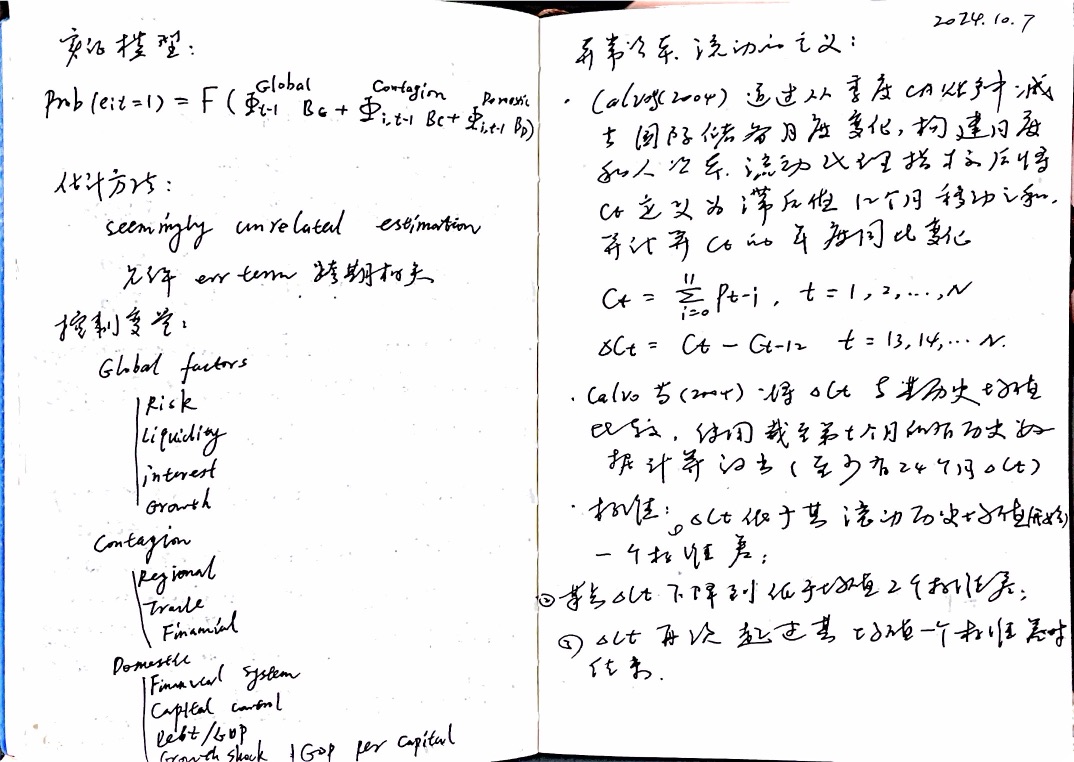 实证模型:
Prob(eit=1) = F(Φt-1 BG + Φi,t-1 BC + Φi,t-1 BD)
Global Contagion Domestic
估计方法:
seemingly unrelated estimation
允许 err term 跨期相关
控制变量:
Global factors
Risk
Liquidity
interest
Growth
Contagion
Regional
Trade
Financial
Domestic
Financial system
Capital control
Debt/GDP
Growth shock / GDP per capital
2024.10.7
异常资本流动的定义:
· Calvo等(2004) 通过从季度CA收支中减
去国际储备月度变化,构建月度
私人资本流动代理指标,后将
Ct 定义为滞后值12个月移动之和,
并计算Ct的年度同比变化
Ct = Σ Pt-i, t=1,2,...,N
11
i=0
ΔCt = Ct - Ct-12 t=13,14,... N.
· Calvo等(2004)将ΔCt与其历史均值
比较,使用截至第t个月的所有历史数
据计算得出(至少有24个月ΔCt)
· 标准: ① ΔCt低于其滚动历史均值(开始)
一个标准差;
② 某点ΔCt下降到低于均值2个标准差;
③ ΔCt再次超过其均值一个标准差时
结束.